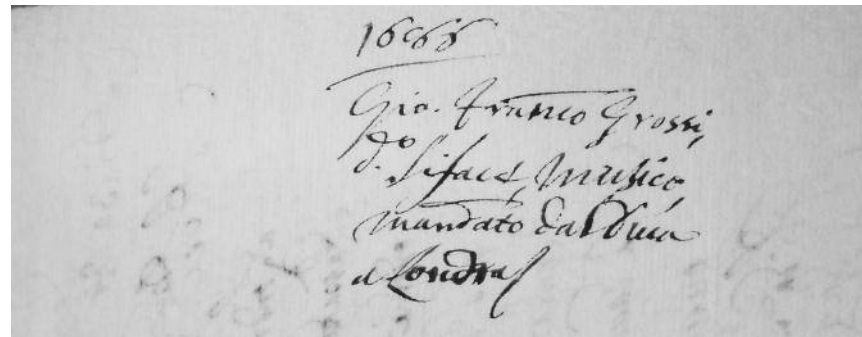 1686
Gio. Franco Grossi,
d.º Siface, Musico,
mandato dal Duca
a Londra